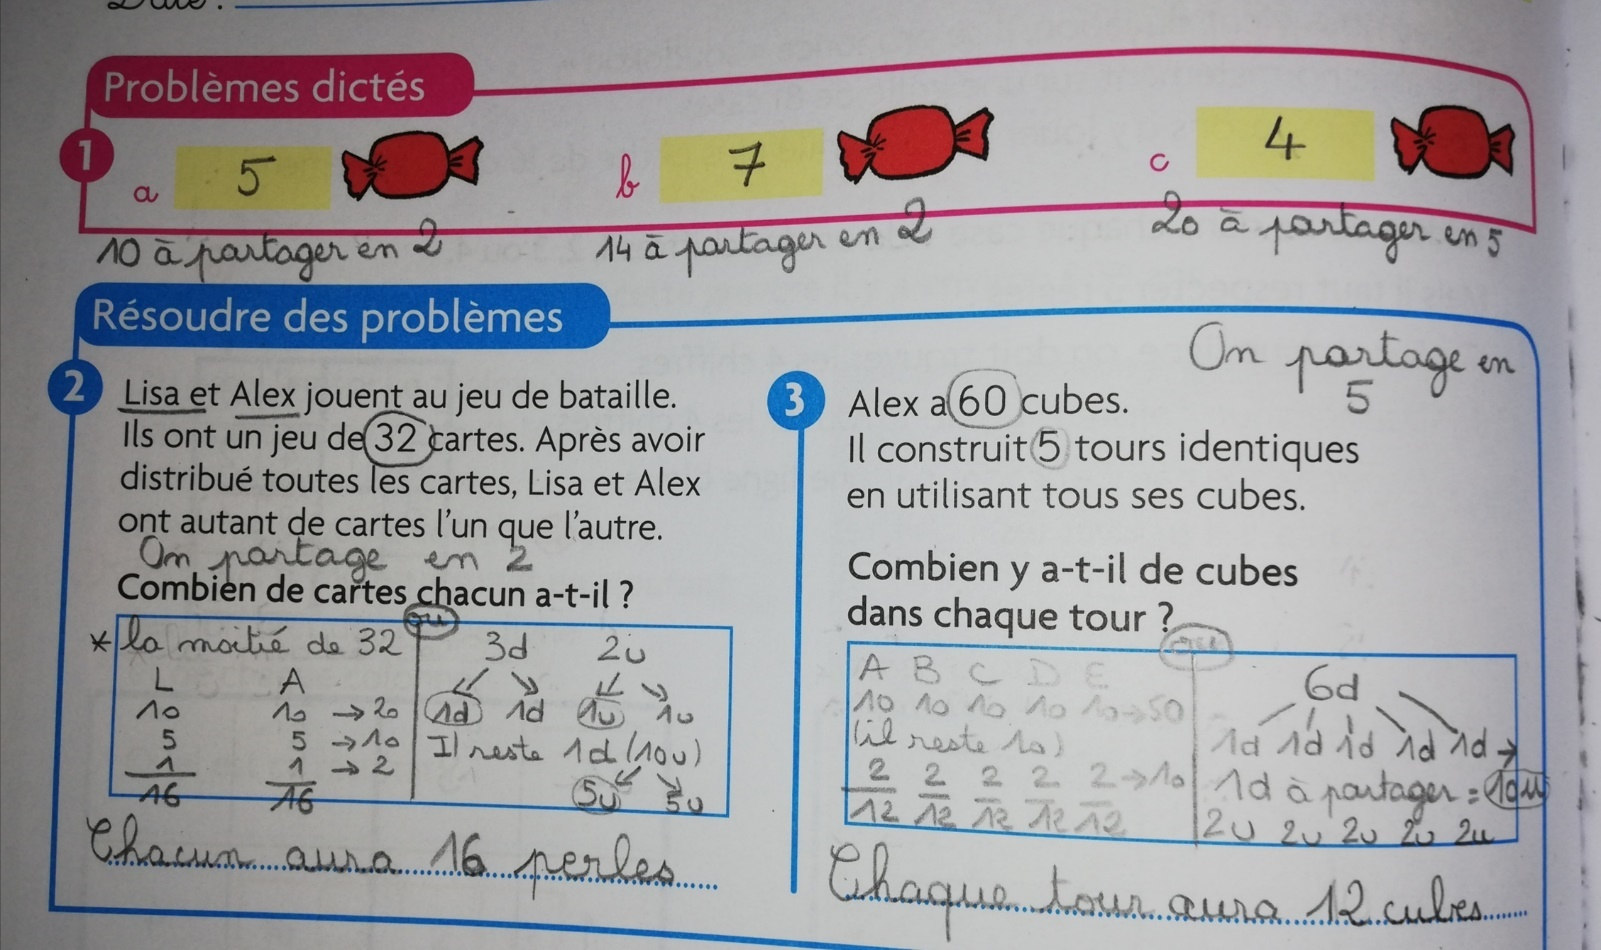 Date :
Problèmes dictés
1
a 5 b 7 c 4
10 à partager en 2 14 à partager en 2 20 à partager en 5
Résoudre des problèmes
2
Lisa et Alex jouent au jeu de bataille.
Ils ont un jeu de 32 cartes. Après avoir
distribué toutes les cartes, Lisa et Alex
ont autant de cartes l'un que l'autre.
On partage en 2
Combien de cartes chacun a-t-il ?
ou
* la moitié de 32
L A
10 10 → 20
5 5 → 10
1 1 → 2
16 16
3d 2u
1d 1d 1u 1u
Il reste 1d (10u)
5u 5u
Chacun aura 16 perles
On partage en
5
3
Alex a 60 cubes.
Il construit 5 tours identiques
en utilisant tous ses cubes.
Combien y a-t-il de cubes
dans chaque tour ?
ou
A B C D E
10 10 10 10 10 → 50
(il reste 10)
2 2 2 2 2 → 10
12 12 12 12 12
6d
1d 1d 1d 1d 1d →
1d à partager = 10u
2u 2u 2u 2u 2u
Chaque tour aura 12 cubes